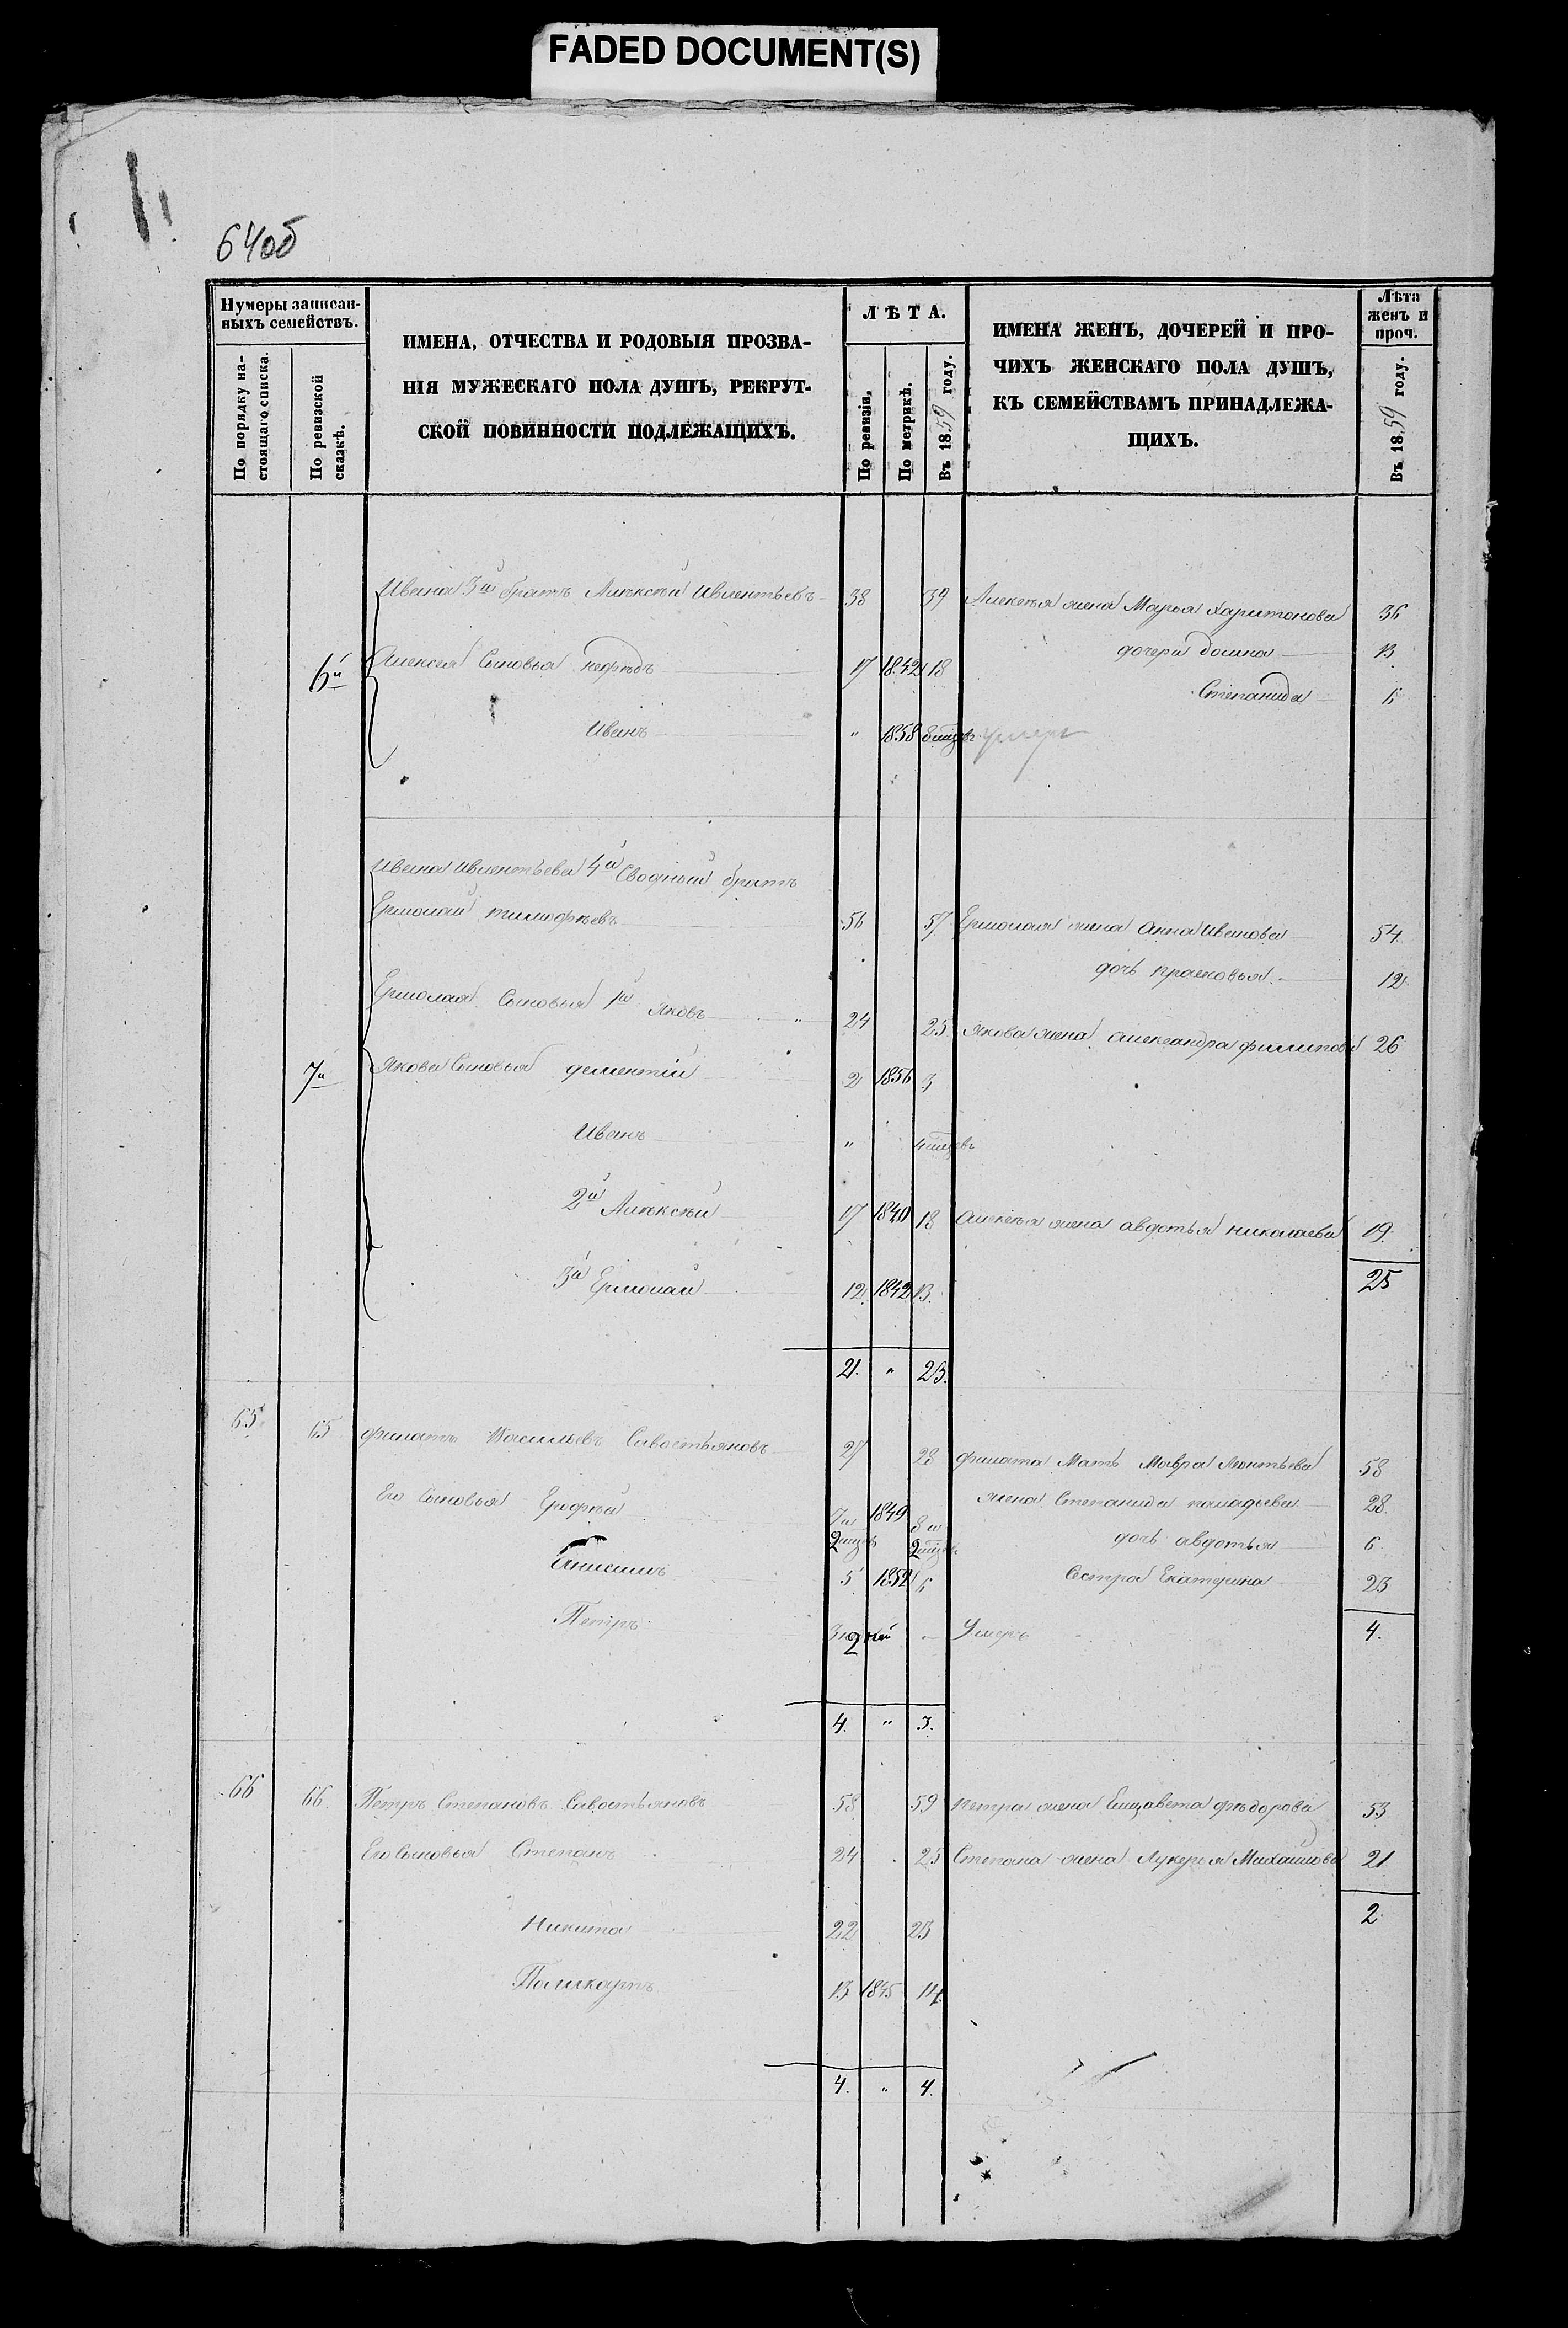 FADED DOCUMENT(S)
64об
Нумеры записан-
ныхъ семействъ.
По порядку на-
стоящаго списка.
По ревизской
сказкѣ.
ИМЕНА, ОТЧЕСТВА И РОДОВЫЯ ПРОЗВА-
НІЯ МУЖЕСКАГО ПОЛА ДУШЪ, РЕКРУТ-
СКОЙ ПОВИННОСТИ ПОДЛЕЖАЩИХЪ.
ЛѢТА.
По ревизіи.
По метрикѣ.
Въ 1859 году.
ИМЕНА ЖЕНЪ, ДОЧЕРЕЙ И ПРО-
ЧИХЪ ЖЕНСКАГО ПОЛА ДУШЪ,
КЪ СЕМЕЙСТВАМЪ ПРИНАДЛЕЖА-
ЩИХЪ.
Лѣта
женъ и
проч.
Въ 1859 году.
Ивана 3й братъ Алѣксѣй Ивлентьевъ 38 39 Алексѣя жена Марья Харитонова 36
6й Алексѣя Сыновья Нефедъ 17 1842 18 дочери Домна 13
Степанида 6
Иванъ " 1858 8 мѣсяцъ умеръ
Ивана Ивлентьева 4й Сводный братъ
Ермолай тимофѣевъ 56 57 Ермолая жена Анна Иванова 54
дочь прасковья 12
Ермолая Сыновья 1й Яковъ " 24 25 Якова жена Александра филипова 26
7й Якова Сыновья дементій 2 1856 3
Иванъ " 4 мѣсяцъ
2й Алѣксѣй 17 1840 18 Алексѣя жена авдотья николаева 19
3й Ермолай 12 1842 13 25
21. " 23.
65 65 филатъ Васильевъ Савостьяновъ 27 28 филата Мать Мавра Леонтьева 58
Его Сыновья Ерофѣй 7 и 2 мѣсяцъ 1849 8 и 2 мѣсяцъ жена Степанида 28
дочь авдотья 6
Анисимъ 5 1852 6 Сестра Екатерина 23
Петръ Умеръ 4.
4. " 3.
66 66. Петръ Степановъ Савостьяновъ 58 59 Петра жена Елизавета фѣдорова 53
Его сыновья Степанъ 24 25 Степана жена Лукерья Михайлова 21
2
Никита 22 23
Паликарпъ 13 1845 14
4. " 4.